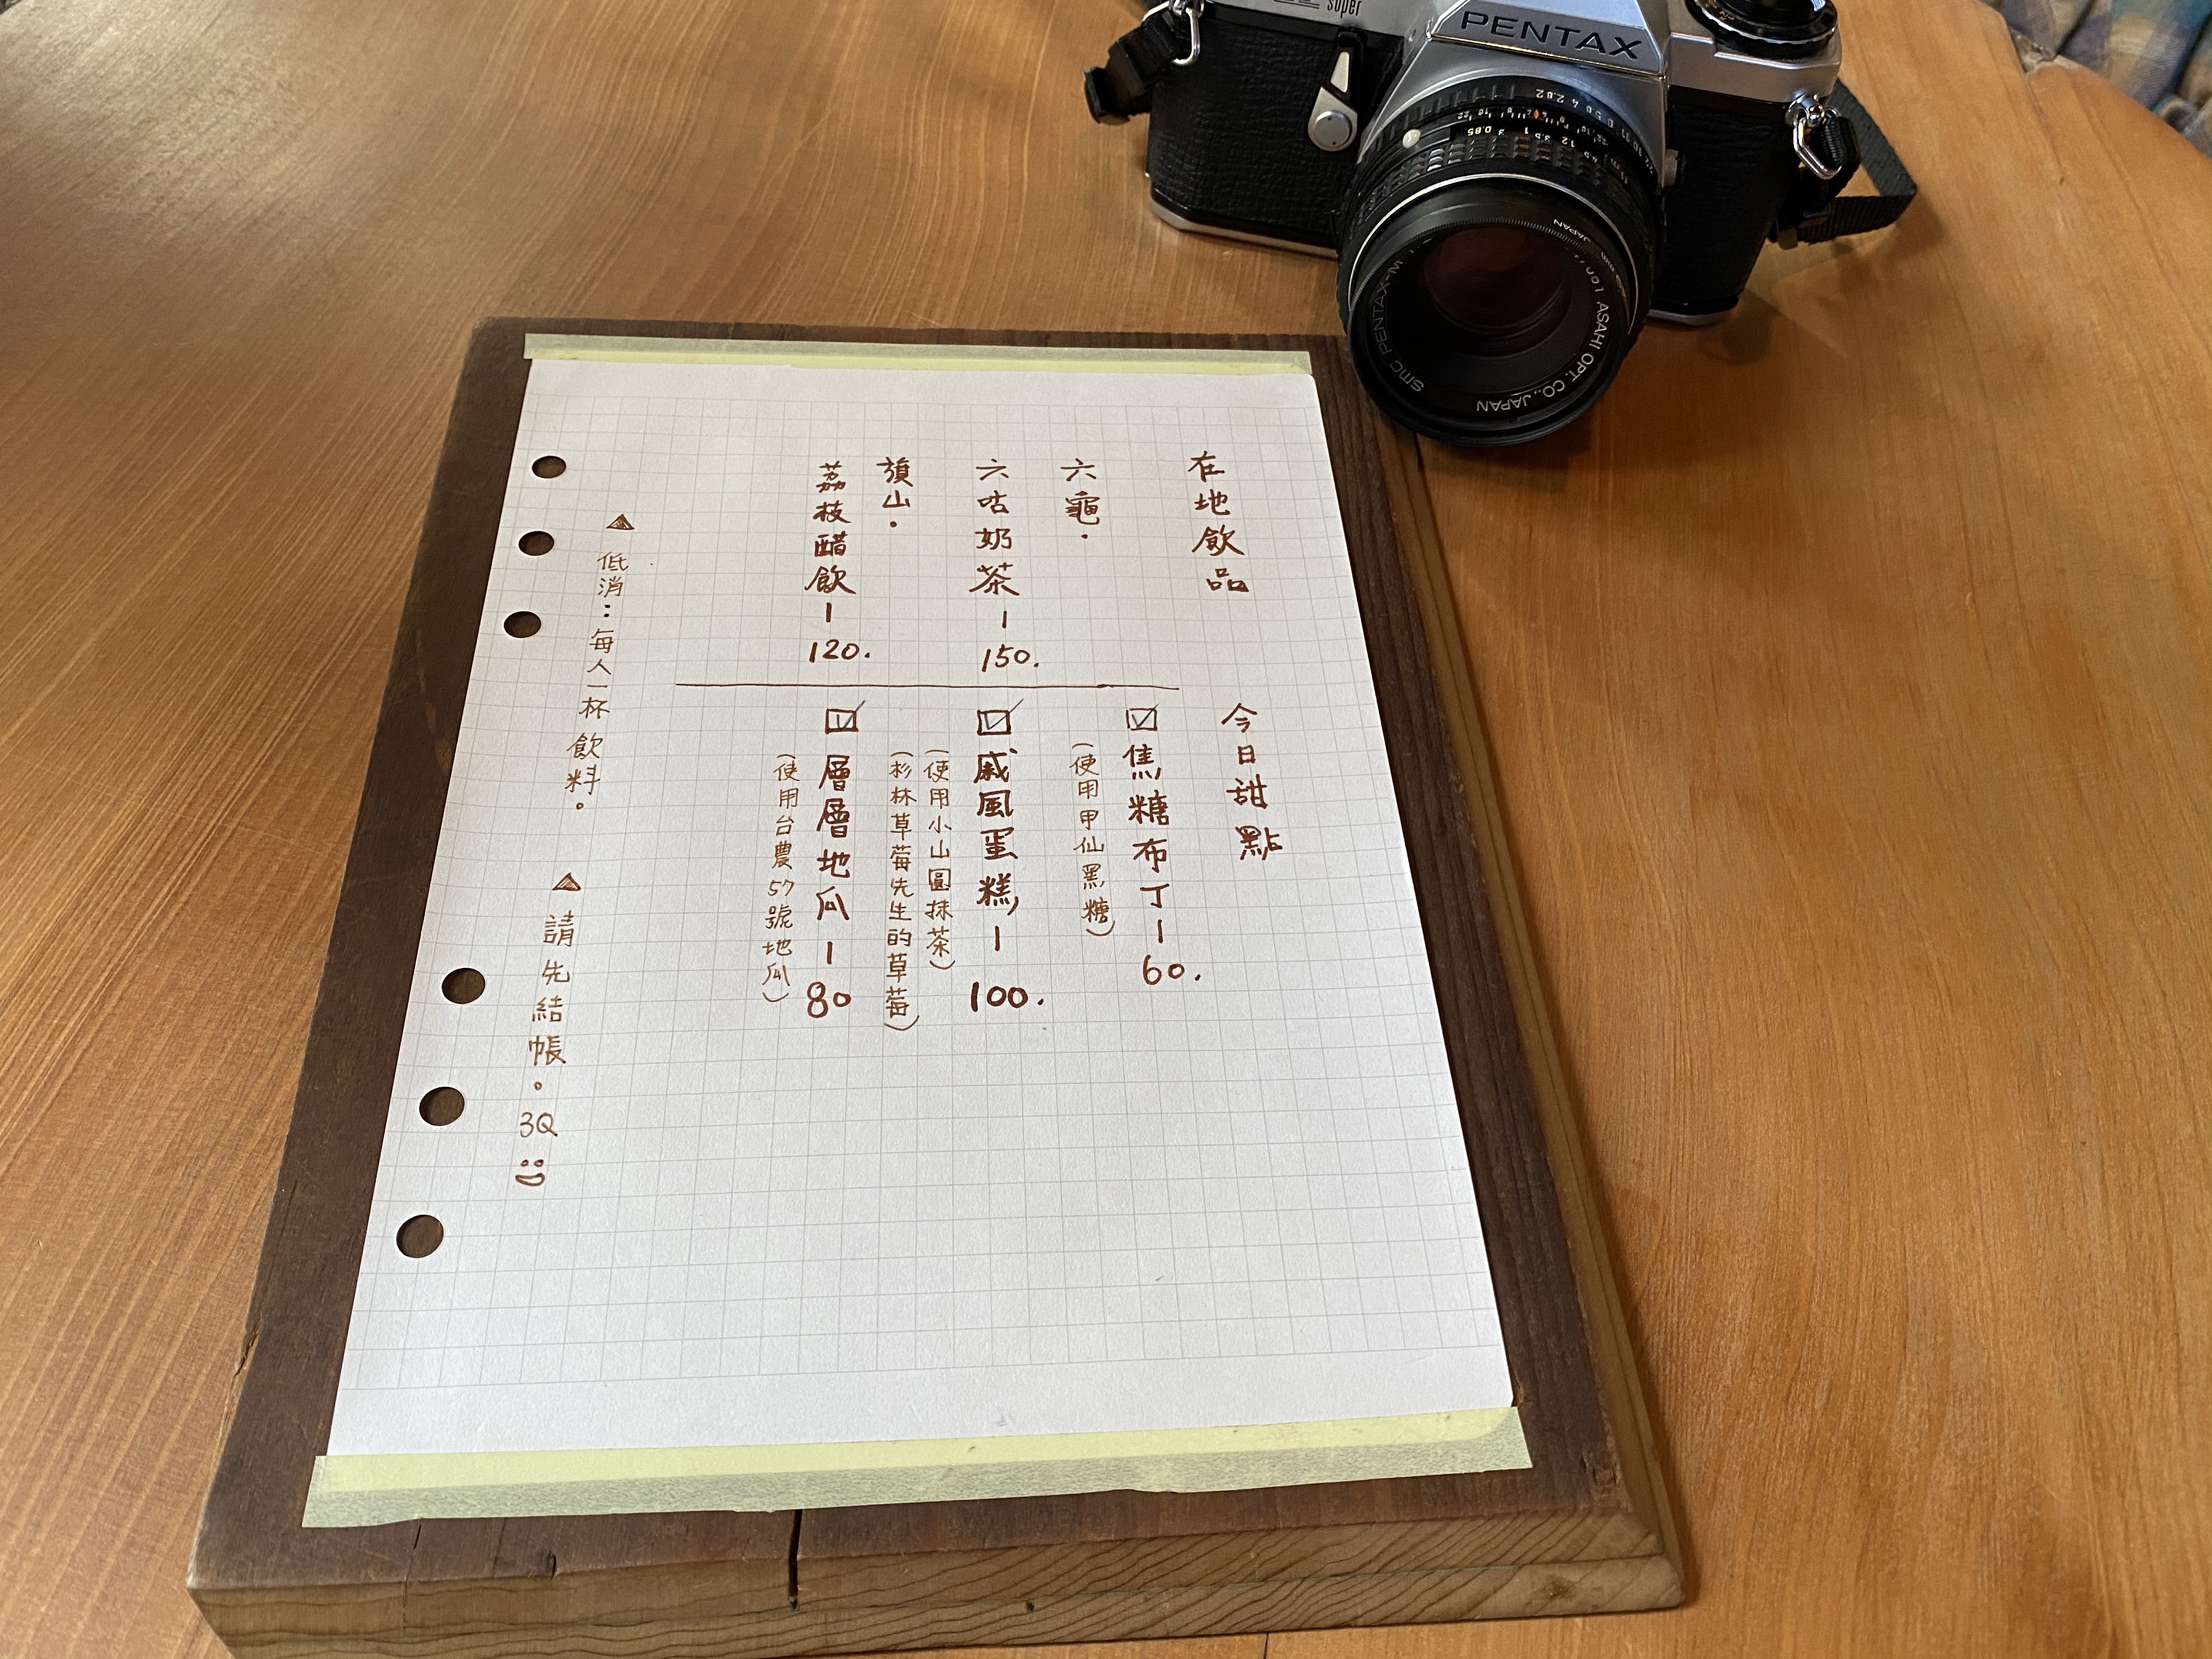 在地飲品
六龜．
六咕奶茶－150.
旗山．
荔枝醋飲－120.
今日甜點
☑焦糖布丁－60.
(使用甲仙黑糖)
☑戚風蛋糕－100.
(使用小山圓抹茶)
(杉林草莓先生的草莓)
☑層層地瓜－80
(使用台農57號地瓜)
▲低消：每人一杯飲料。
▲請先結帳。3Q
PENTAX
super
SMC PENTAX-M
ASAHI OPT. CO., JAPAN
JAPAN